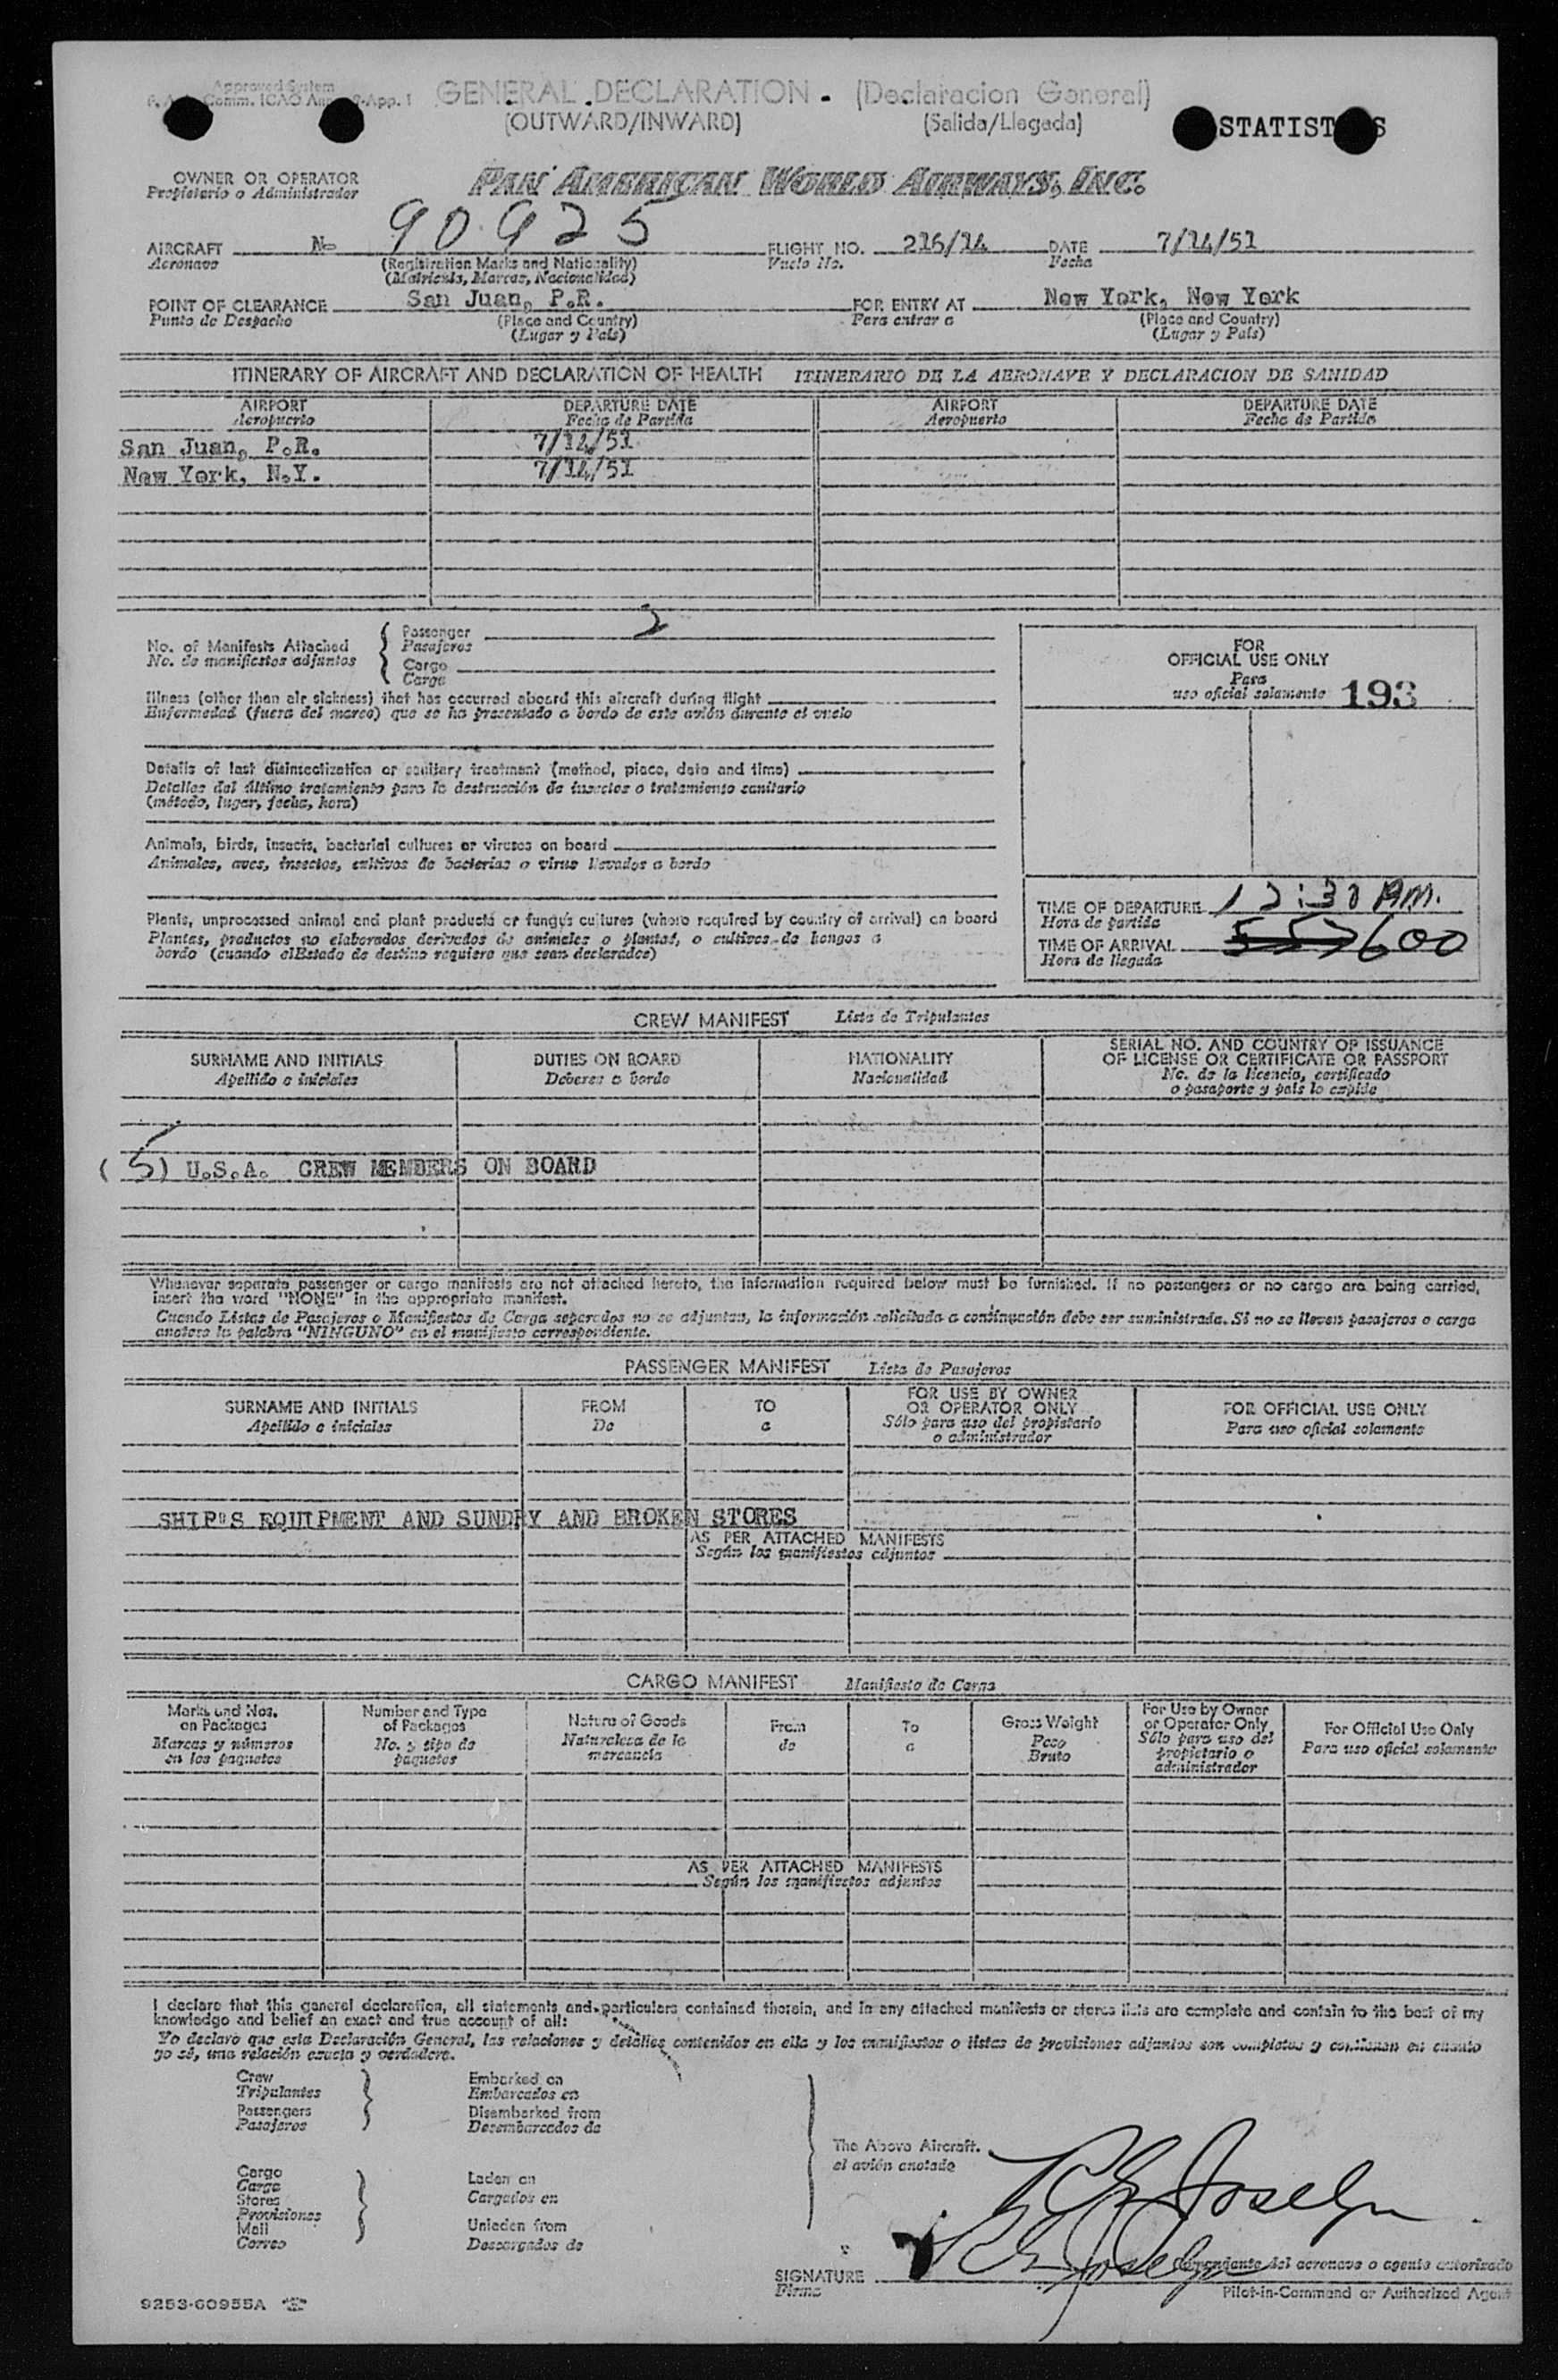 Approved System
GENERAL DECLARATION - (Declaracion General)
(OUTWARD/INWARD) (Salida/Llegada)
STATIST S
OWNER OR OPERATOR
Propietario o Administrador
PAN AMERICAN WORLD AIRWAYS, INC.
AIRCRAFT N- 90925 FLIGHT NO. 216/14 DATE 7/14/51
Aeronave (Registration Marks and Nationality) Vuelo No. Fecha
(Matricula, Marcas, Nacionalidad)
POINT OF CLEARANCE San Juan, P.R. FOR ENTRY AT New York, New York
Punto de Despacho (Place and Country) Para entrar a (Place and Country)
(Lugar y País) (Lugar y País)
ITINERARY OF AIRCRAFT AND DECLARATION OF HEALTH ITINERARIO DE LA AERONAVE Y DECLARACION DE SANIDAD
AIRPORT DEPARTURE DATE AIRPORT DEPARTURE DATE
Aeropuerto Fecha de Partida Aeropuerto Fecha de Partida
San Juan, P.R. 7/14/51
New York, N.Y. 7/14/51
No. of Manifests Attached Passenger 2
No. de manifiestos adjuntos Pasajeros
Cargo
Carga
FOR
OFFICIAL USE ONLY
Para
uso oficial solamente 193
Illness (other than air sickness) that has occurred aboard this aircraft during flight
Enfermedad (fuera del mareo) que se ha presentado a bordo de este avión durante el vuelo
Details of last disinsectization or sanitary treatment (method, place, date and time)
Detalles del último tratamiento para la destrucción de insectos o tratamiento sanitario
(método, lugar, fecha, hora)
Animals, birds, insects, bacterial cultures or viruses on board
Animales, aves, insectos, cultivos de bacterias o virus llevados a bordo
Plants, unprocessed animal and plant products or fungus cultures (where required by country of arrival) on board
Plantas, productos no elaborados derivados de animales o plantas, o cultivos de hongos a
bordo (cuando el Estado de destino requiere que sean declarados)
TIME OF DEPARTURE 12:30 AM.
Hora de partida
TIME OF ARRIVAL 600
Hora de llegada
CREW MANIFEST Lista de Tripulantes
SURNAME AND INITIALS DUTIES ON BOARD NATIONALITY SERIAL NO. AND COUNTRY OF ISSUANCE
OF LICENSE OR CERTIFICATE OR PASSPORT
Apellido e iniciales Deberes a bordo Nacionalidad No. de la licencia, certificado
o pasaporte y país lo expide
(5) U.S.A. CREW MEMBERS ON BOARD
Whenever separate passenger or cargo manifests are not attached hereto, the information required below must be furnished. If no passengers or no cargo are being carried,
insert the word "NONE" in the appropriate manifest.
Cuando Listas de Pasajeros o Manifiestos de Carga separados no se adjuntan, la información solicitada a continuación debe ser suministrada. Si no se llevan pasajeros o carga
anótese la palabra "NINGUNO" en el manifiesto correspondiente.
PASSENGER MANIFEST Lista de Pasajeros
SURNAME AND INITIALS FROM TO FOR USE BY OWNER OR OPERATOR ONLY FOR OFFICIAL USE ONLY
Apellido e iniciales De a Sólo para uso del propietario o administrador Para uso oficial solamente
SHIP'S EQUIPMENT AND SUNDRY AND BROKEN STORES
AS PER ATTACHED MANIFESTS
Según los manifiestos adjuntos
CARGO MANIFEST Manifiesto de Carga
Marks and Nos. on Packages Number and Type of Packages Nature of Goods From To Gross Weight For Use by Owner or Operator Only For Official Use Only
Marcas y números en los paquetes No. y tipo de paquetes Naturaleza de la mercancía de a Peso Bruto Sólo para uso del propietario o administrador Para uso oficial solamente
AS PER ATTACHED MANIFESTS
Según los manifiestos adjuntos
I declare that this general declaration, all statements and particulars contained therein, and in any attached manifests or stores lists are complete and contain to the best of my
knowledge and belief an exact and true account of all:
Yo declaro que esta Declaración General, las relaciones y detalles contenidos en ella y los manifiestos o listas de provisiones adjuntos son completos y contienen en cuanto
yo sé, una relación exacta y verdadera.
Crew Embarked on
Tripulantes Embarcados en
Passengers Disembarked from
Pasajeros Desembarcados de
The Above Aircraft.
el avión anotado
Cargo Laden on
Carga Cargados en
Stores
Provisiones
Mail Unladen from
Correo Descargados de
R E Joselyn
R E Joselyn
Comandante del aeronave o agente autorizado
SIGNATURE
Firma
Pilot-in-Command or Authorized Agent
9253-60955A